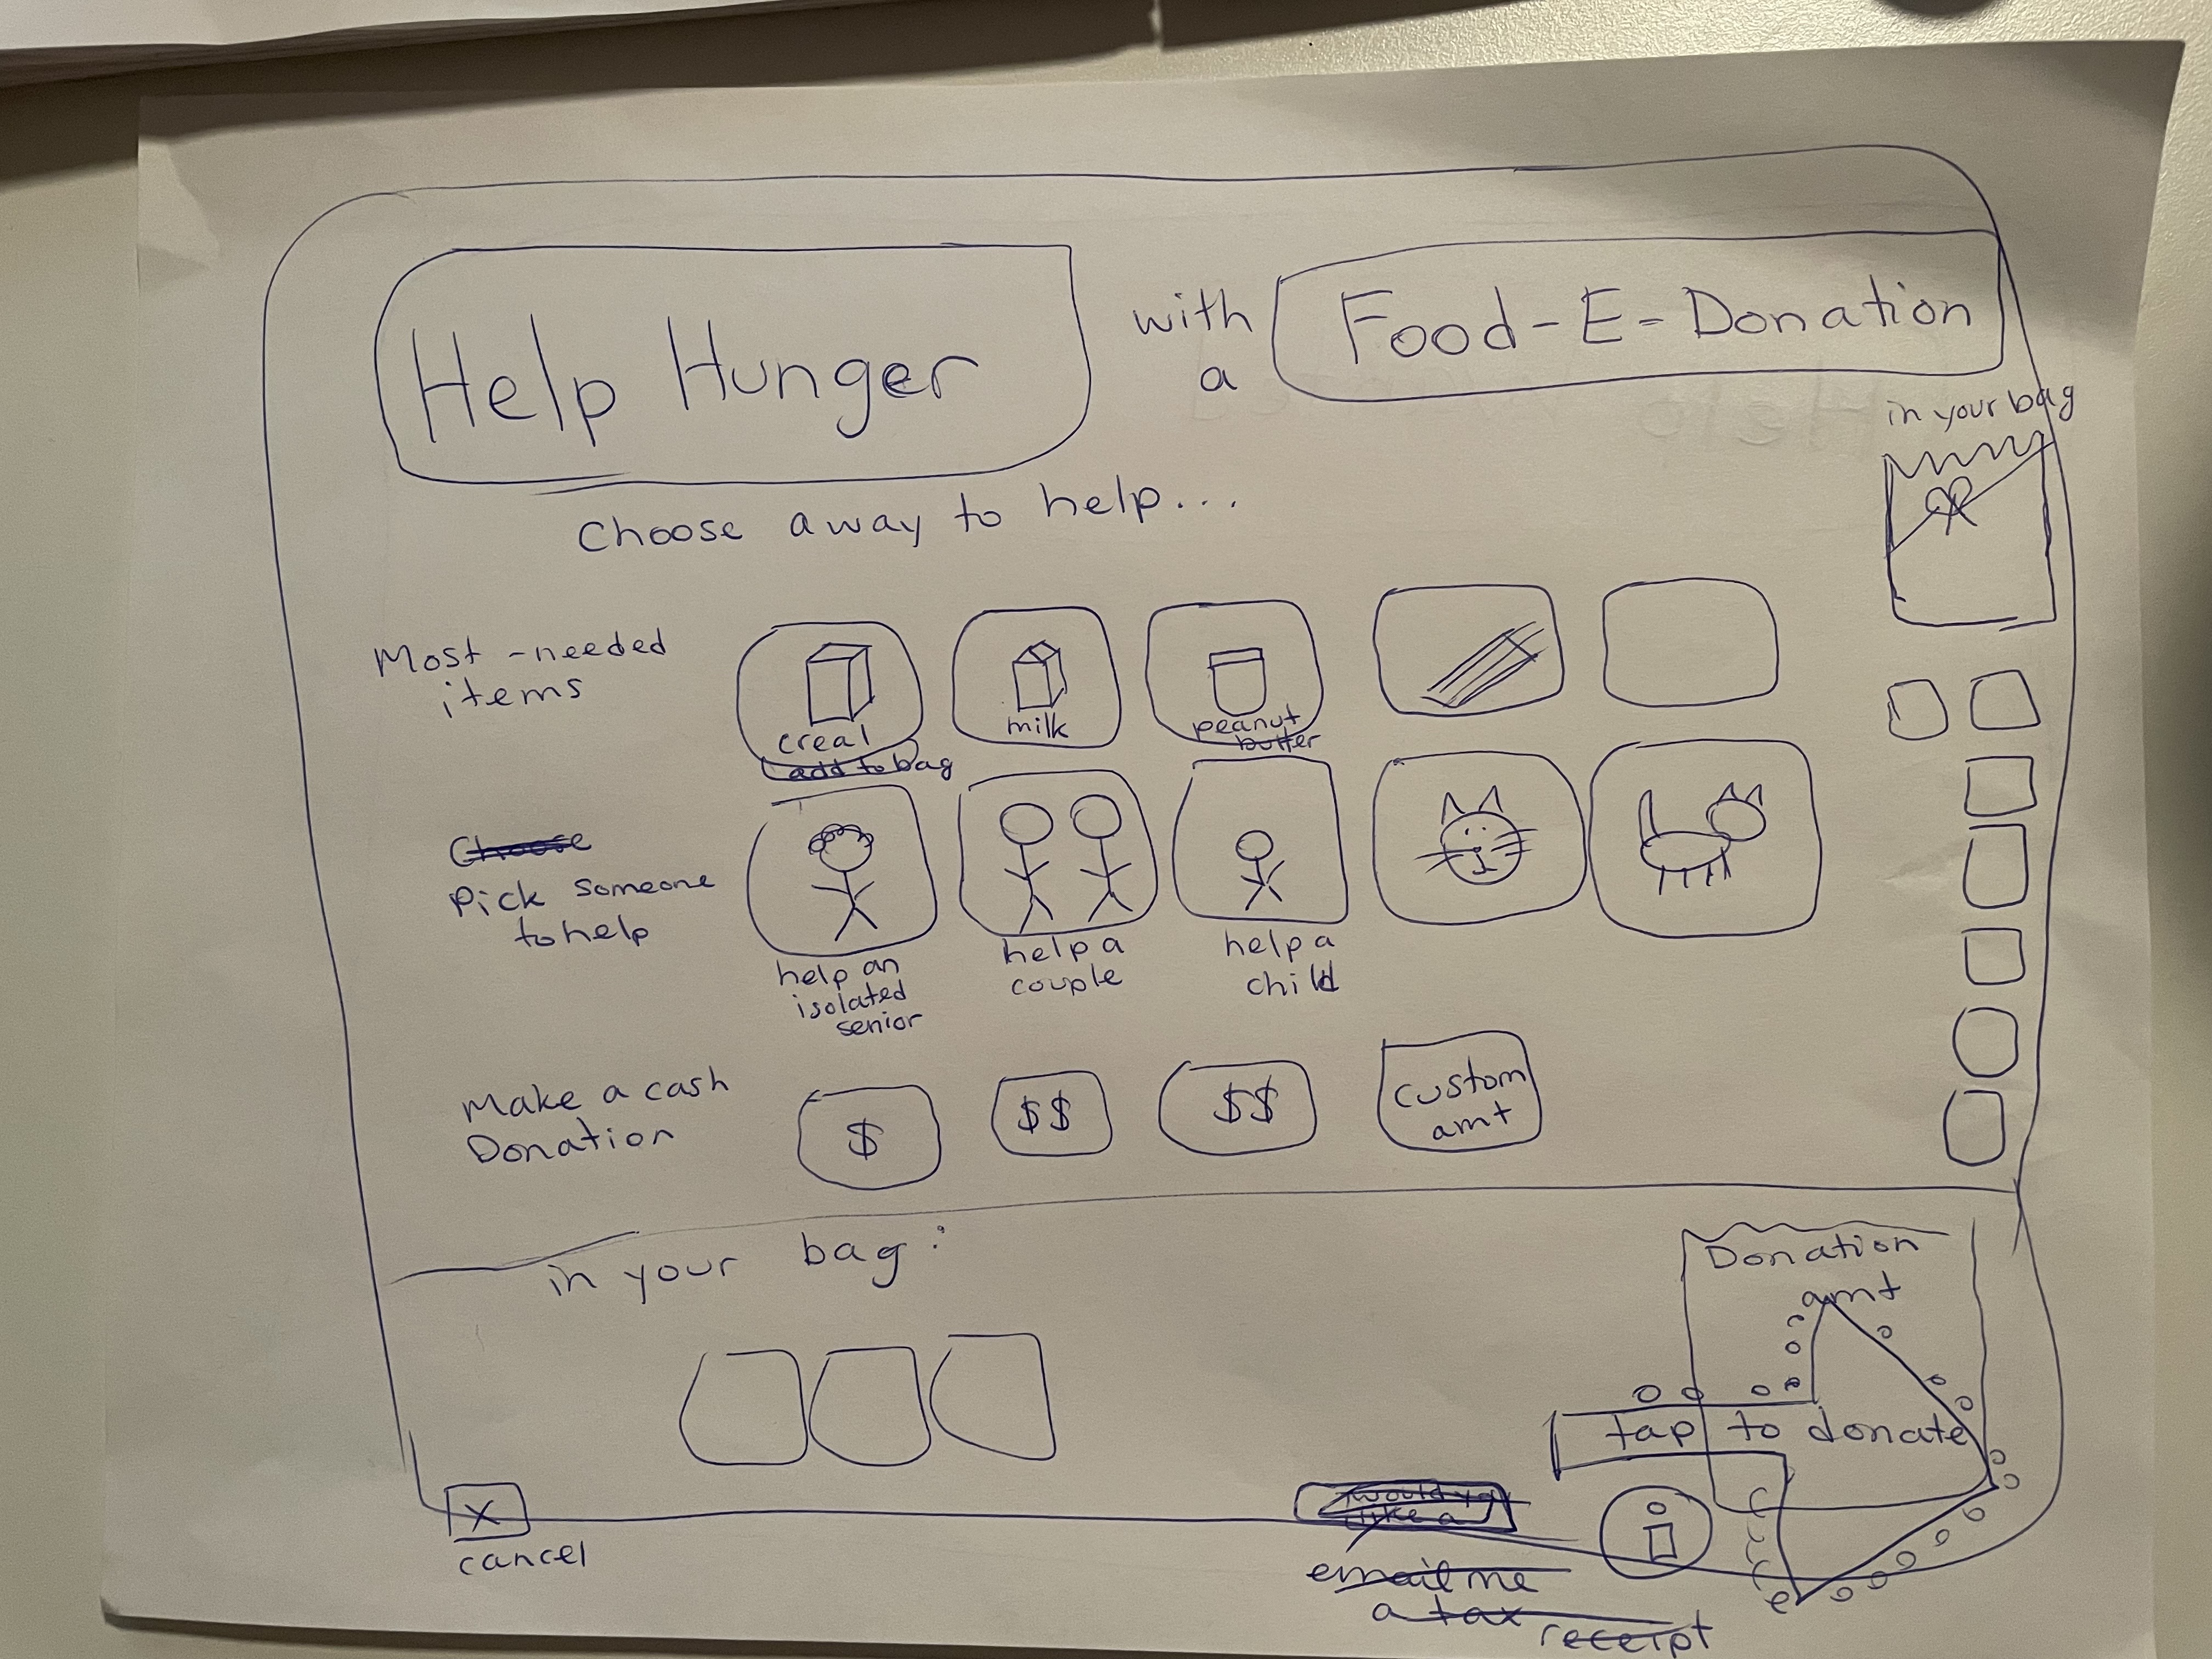 Help Hunger
with
a
Food-E-Donation
in your bag
Choose a way to help...
Most-needed
items
creal
add to bag
milk
peanut
butter
Choose
Pick someone
to help
help an
isolated
senior
help a
couple
help a
child
Make a cash
Donation
$
$$
$$
custom
amt
in your bag:
Donation
amt
tap to donate
would you
like a
i
email me
a tax
receipt
X
cancel